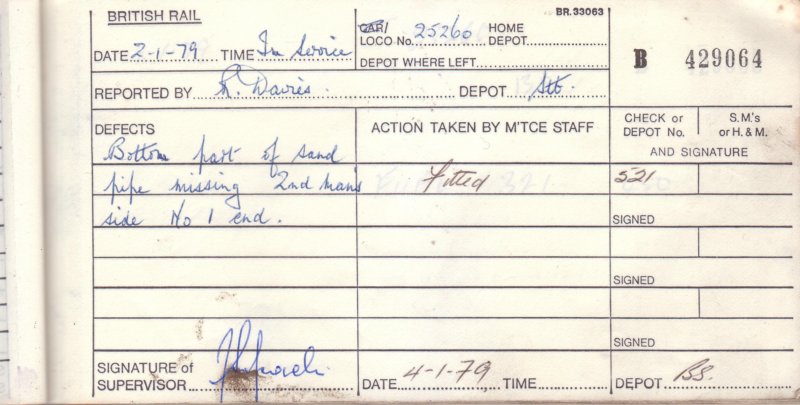 BRITISH RAIL
BR.33063
DATE 2-1-79 TIME In Service
CAR/ LOCO No. 25260 HOME DEPOT
DEPOT WHERE LEFT
B 429064
REPORTED BY R. Davies. DEPOT Stb.
DEFECTS
ACTION TAKEN BY M'TCE STAFF
CHECK or DEPOT No.
S.M.'s or H. & M.
AND SIGNATURE
Bottom part of sand
pipe missing 2nd man's
side No 1 end.
Fitted
521
SIGNED
SIGNED
SIGNED
SIGNATURE of SUPERVISOR
DATE 4-1-79 TIME
DEPOT BS.